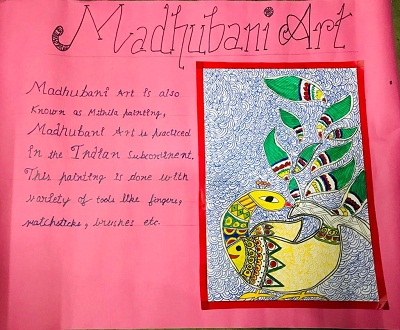 Madhubani Art
Madhubani Art is also
known as Mithila painting,
Madhubani Art is practiced
in the Indian subcontinent.
This painting is done with
variety of tools like fingers,
matchsticks, brushes etc.